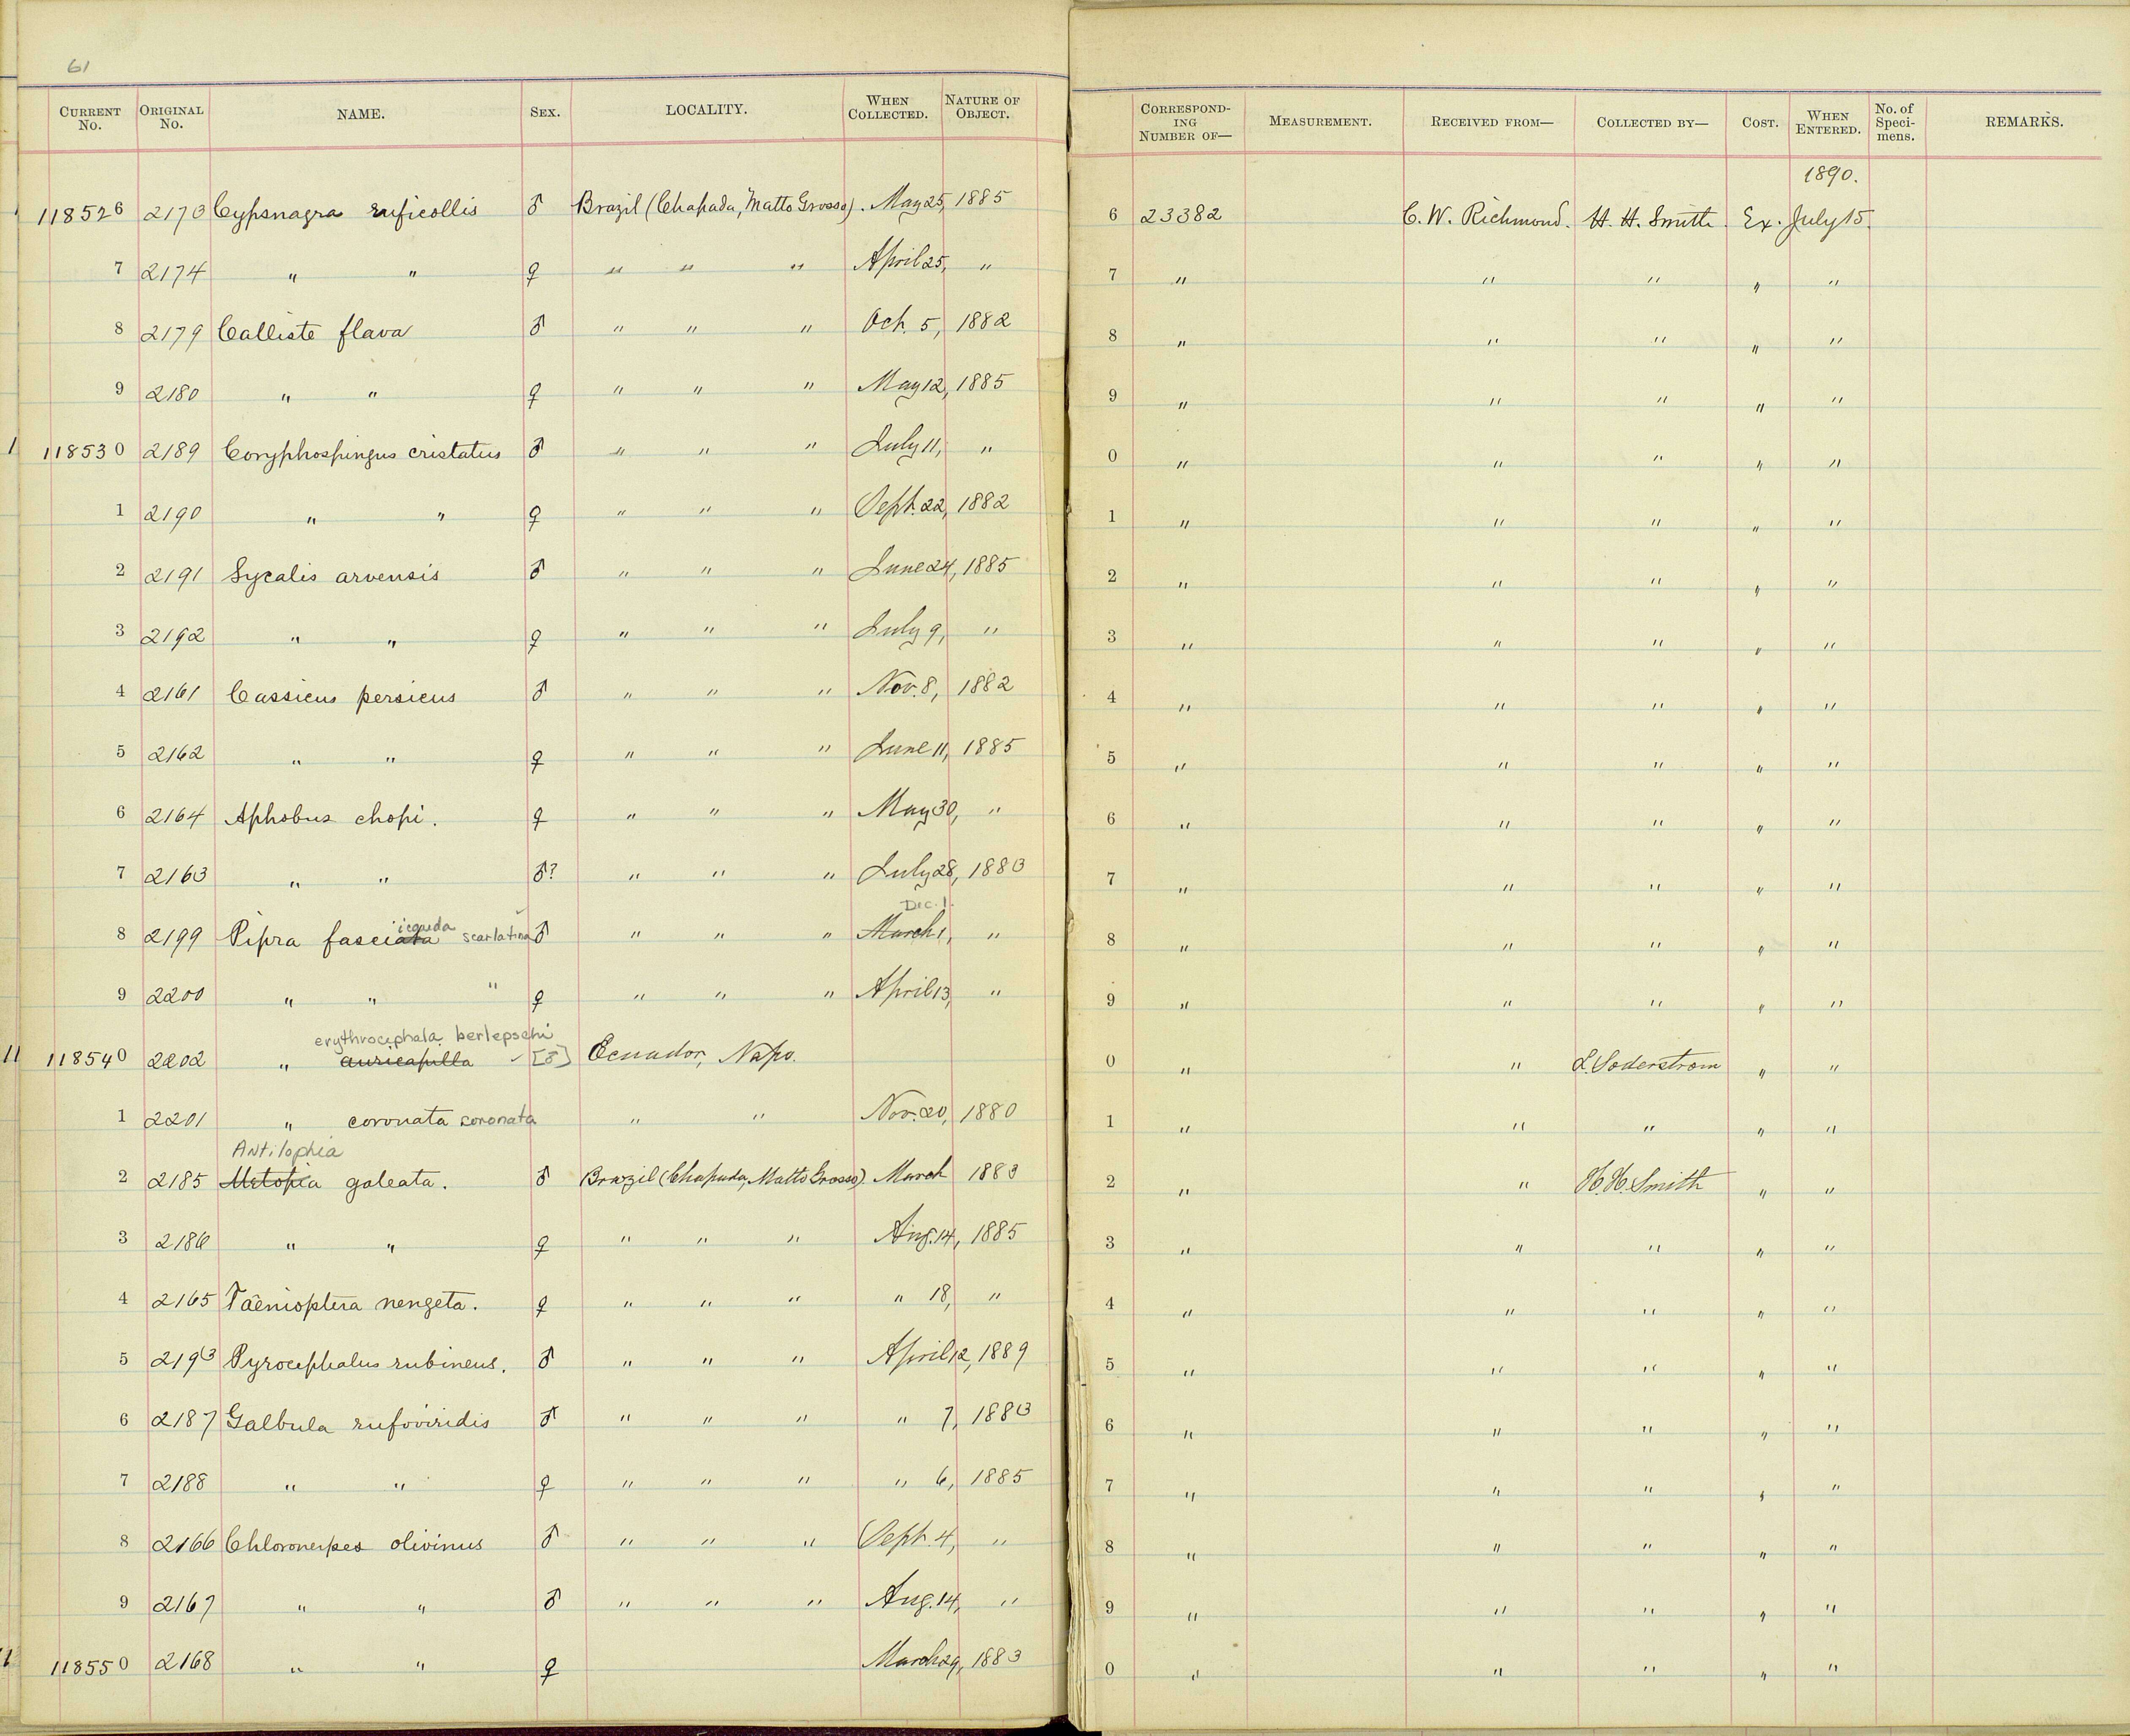 61
CURRENT No. ORIGINAL No. NAME. SEX. LOCALITY. WHEN COLLECTED. NATURE OF OBJECT. CORRESPONDING NUMBER OF— MEASUREMENT. RECEIVED FROM— COLLECTED BY— COST. WHEN ENTERED. No. of Specimens. REMARKS.
1890.
118526 2173 Cypsnagra ruficollis ♂ Brazil (Chapada, Matto Grosso). May 25, 1885 6 23382 C. W. Richmond. H. H. Smith. Ex. July 15.
7 2174 " " ♀ " " " April 25, " 7 " " " " "
8 2179 Calliste flava ♂ " " " Oct. 5, 1882 8 " " " " "
9 2180 " " ♀ " " " May 12, 1885 9 " " " " "
118530 2189 Coryphospingus cristatus ♂ " " " July 11, " 0 " " " " "
1 2190 " " ♀ " " " Sept. 22, 1882 1 " " " " "
2 2191 Sycalis arvensis ♂ " " " June 24, 1885 2 " " " " "
3 2192 " " ♀ " " " July 9, " 3 " " " " "
4 2161 Cassicus persicus ♂ " " " Nov. 8, 1882 4 " " " " "
5 2162 " " ♀ " " " June 11, 1885 5 " " " " "
6 2164 Aphobus chopi. ♀ " " " May 30, " 6 " " " " "
7 2163 " " ♂? " " " July 28, 1883 7 " " " " "
Dec. 1.
8 2199 Pipra fasciata iicauda scarlatina ♂ " " " March 1, " 8 " " " " "
9 2200 " " " ♀ " " " April 13, " 9 " " " " "
erythrocephala berlepschi
118540 2202 " auricapilla ✓ [♂] Ecuador, Napo. 0 " " L. Soderstrom " "
1 2201 " coronata coronata " " Nov. 20, 1880 1 " " " " "
Antilophia
2 2185 Metopia galeata. ♂ Brazil (Chapada, Matto Grosso) March 1883 2 " " H. H. Smith " "
3 2186 " " ♀ " " " Aug. 14, 1885 3 " " " " "
4 2165 Taenioptera nengeta. ♀ " " " " 18, " 4 " " " " "
5 2193 Pyrocephalus rubineus. ♂ " " " April 12, 1889 5 " " " " "
6 2187 Galbula rufoviridis ♂ " " " " 7, 1883 6 " " " " "
7 2188 " " ♀ " " " " 6, 1885 7 " " " " "
8 2166 Chloronerpes olivinus ♂ " " " Sept. 4, " 8 " " " " "
9 2167 " " ♂ " " " Aug. 14, " 9 " " " " "
118550 2168 " " ♀ March 29, 1883 0 " " " " "